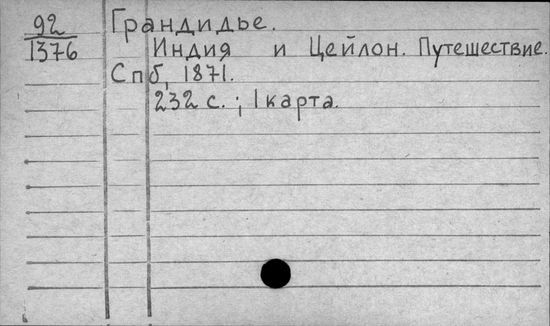 92
1376
Грандидье.
Индия и Цейлон. Путешествие.
Спб, 1871.
232 с. ; 1 карта.